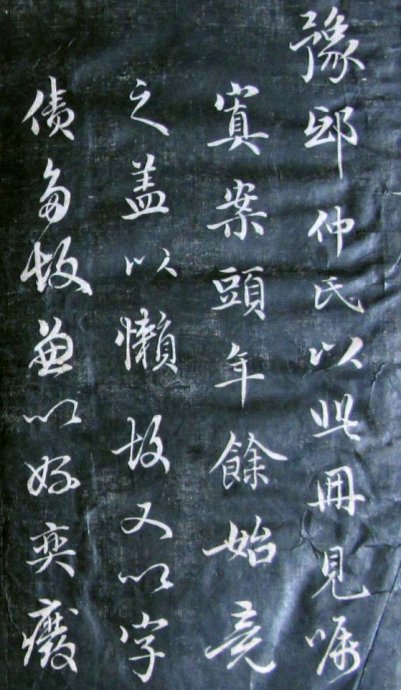 豫邸仲氏以此冊見嘱
寘案頭年餘始竟
之盖以懶故又以字
債多故兼以好奕癈